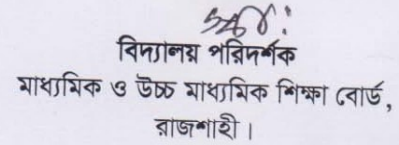 বিদ্যালয় পরিদর্শক
মাধ্যমিক ও উচ্চ মাধ্যমিক শিক্ষা বোর্ড,
রাজশাহী।